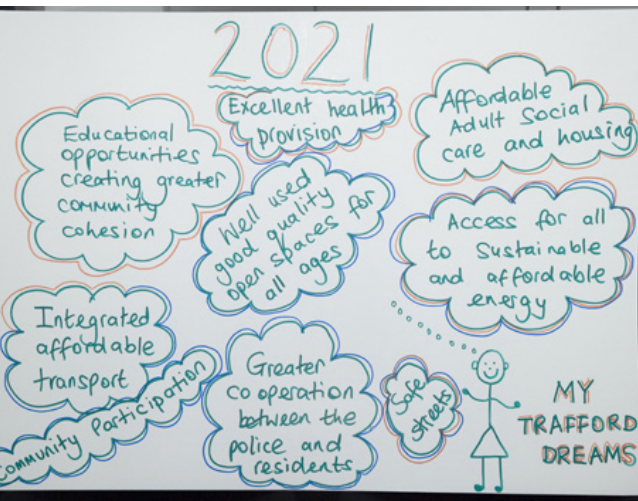 2021
Excellent health
provision
Affordable
Adult Social
care and housing
Educational
opportunities
creating greater
community
cohesion
Well used
good quality
open spaces for
all ages
Access for all
to sustainable
and affordable
energy
Integrated
affordable
transport
Community Participation
Greater
cooperation
between the
police and
residents
Safe
streets
MY
TRAFFORD
DREAMS